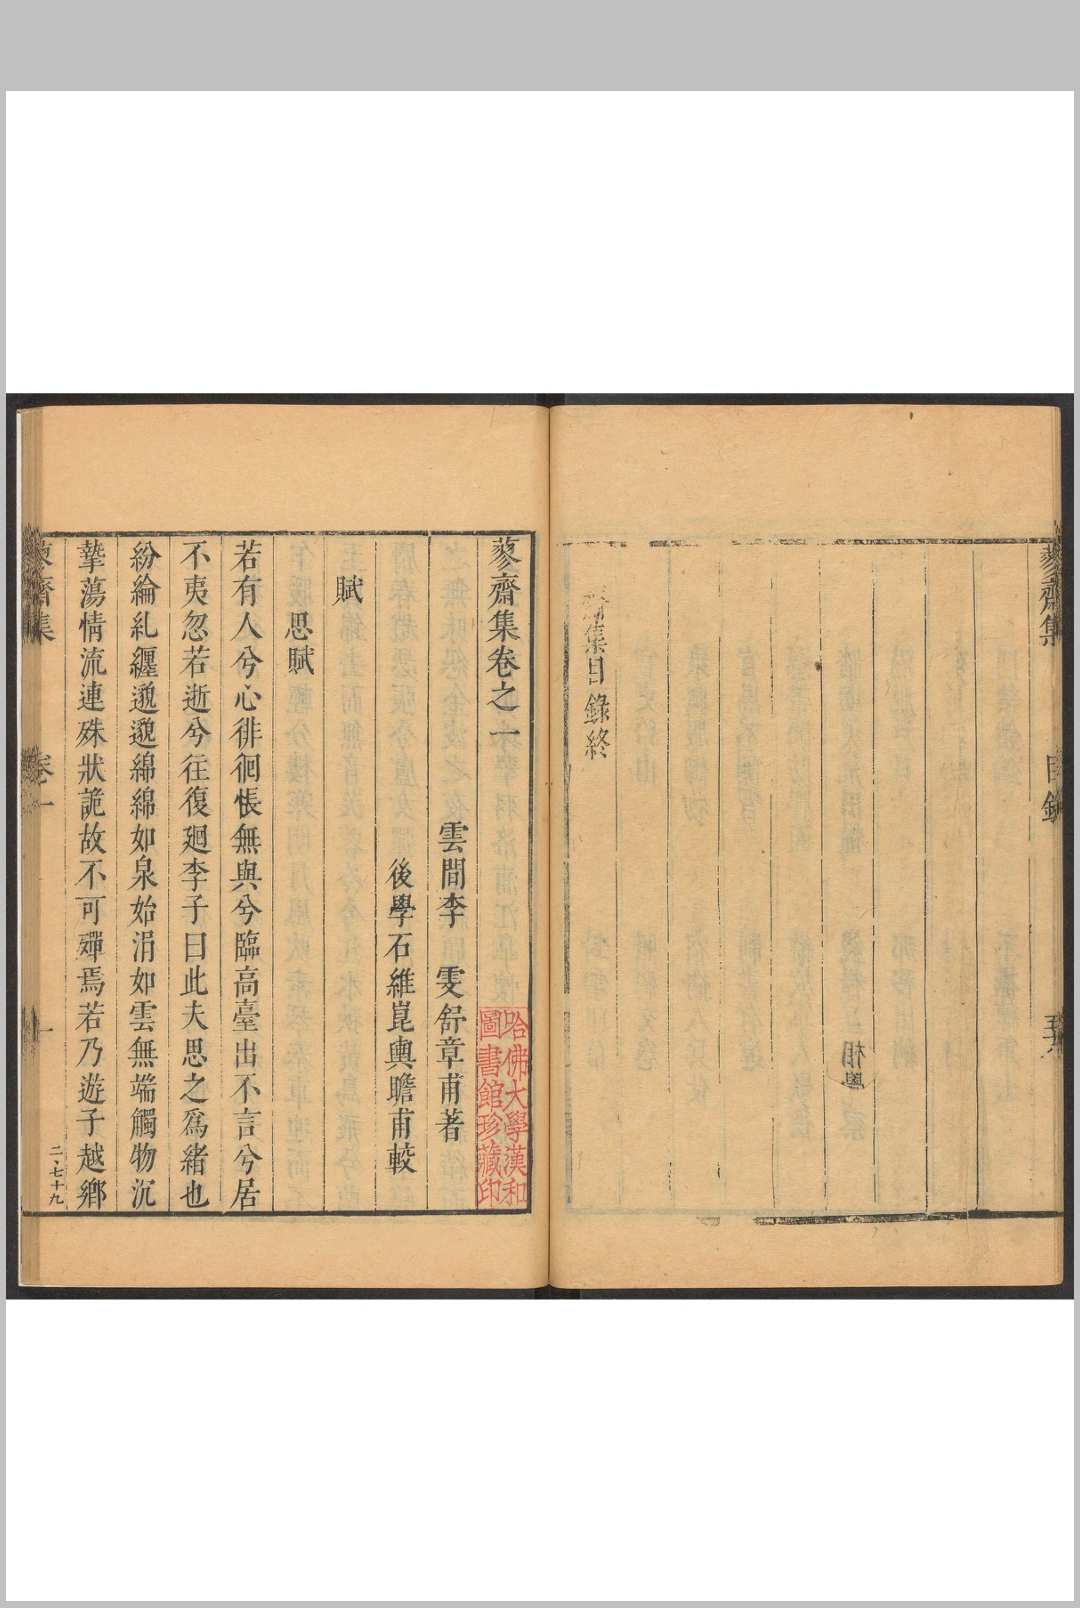 蓼齋集
目錄
集目錄終
蓼齋集卷之一
雲間李　雯舒章甫著
後學石維崑輿瞻甫較
賦
思賦
若有人兮心徘徊悵無與兮臨高臺出不言兮居
不夷忽若逝兮往復廻李子曰此夫思之爲緒也
紛綸糺纒邈邈綿綿如泉始涓如雲無端觸物沉
摯蕩情流連殊狀詭故不可殫焉若乃遊子越鄉
蓼齋集
卷一
一
二、七十九
哈佛大學漢和
圖書館珍藏印